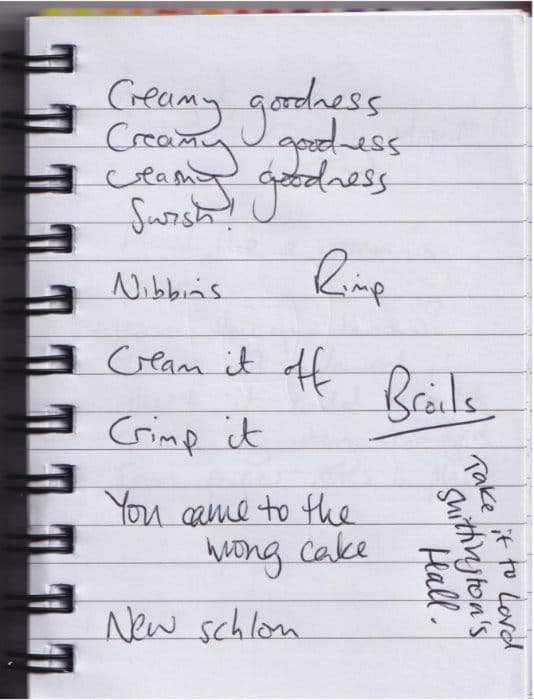 Creamy goodness
Creamy goodness
Creamy goodness
Swish!
Nibbins Rimp
Cream it off
Broils
Crimp it
You came to the
wrong cake
New schlon
Take it to Lord
Shittington's
Hall.